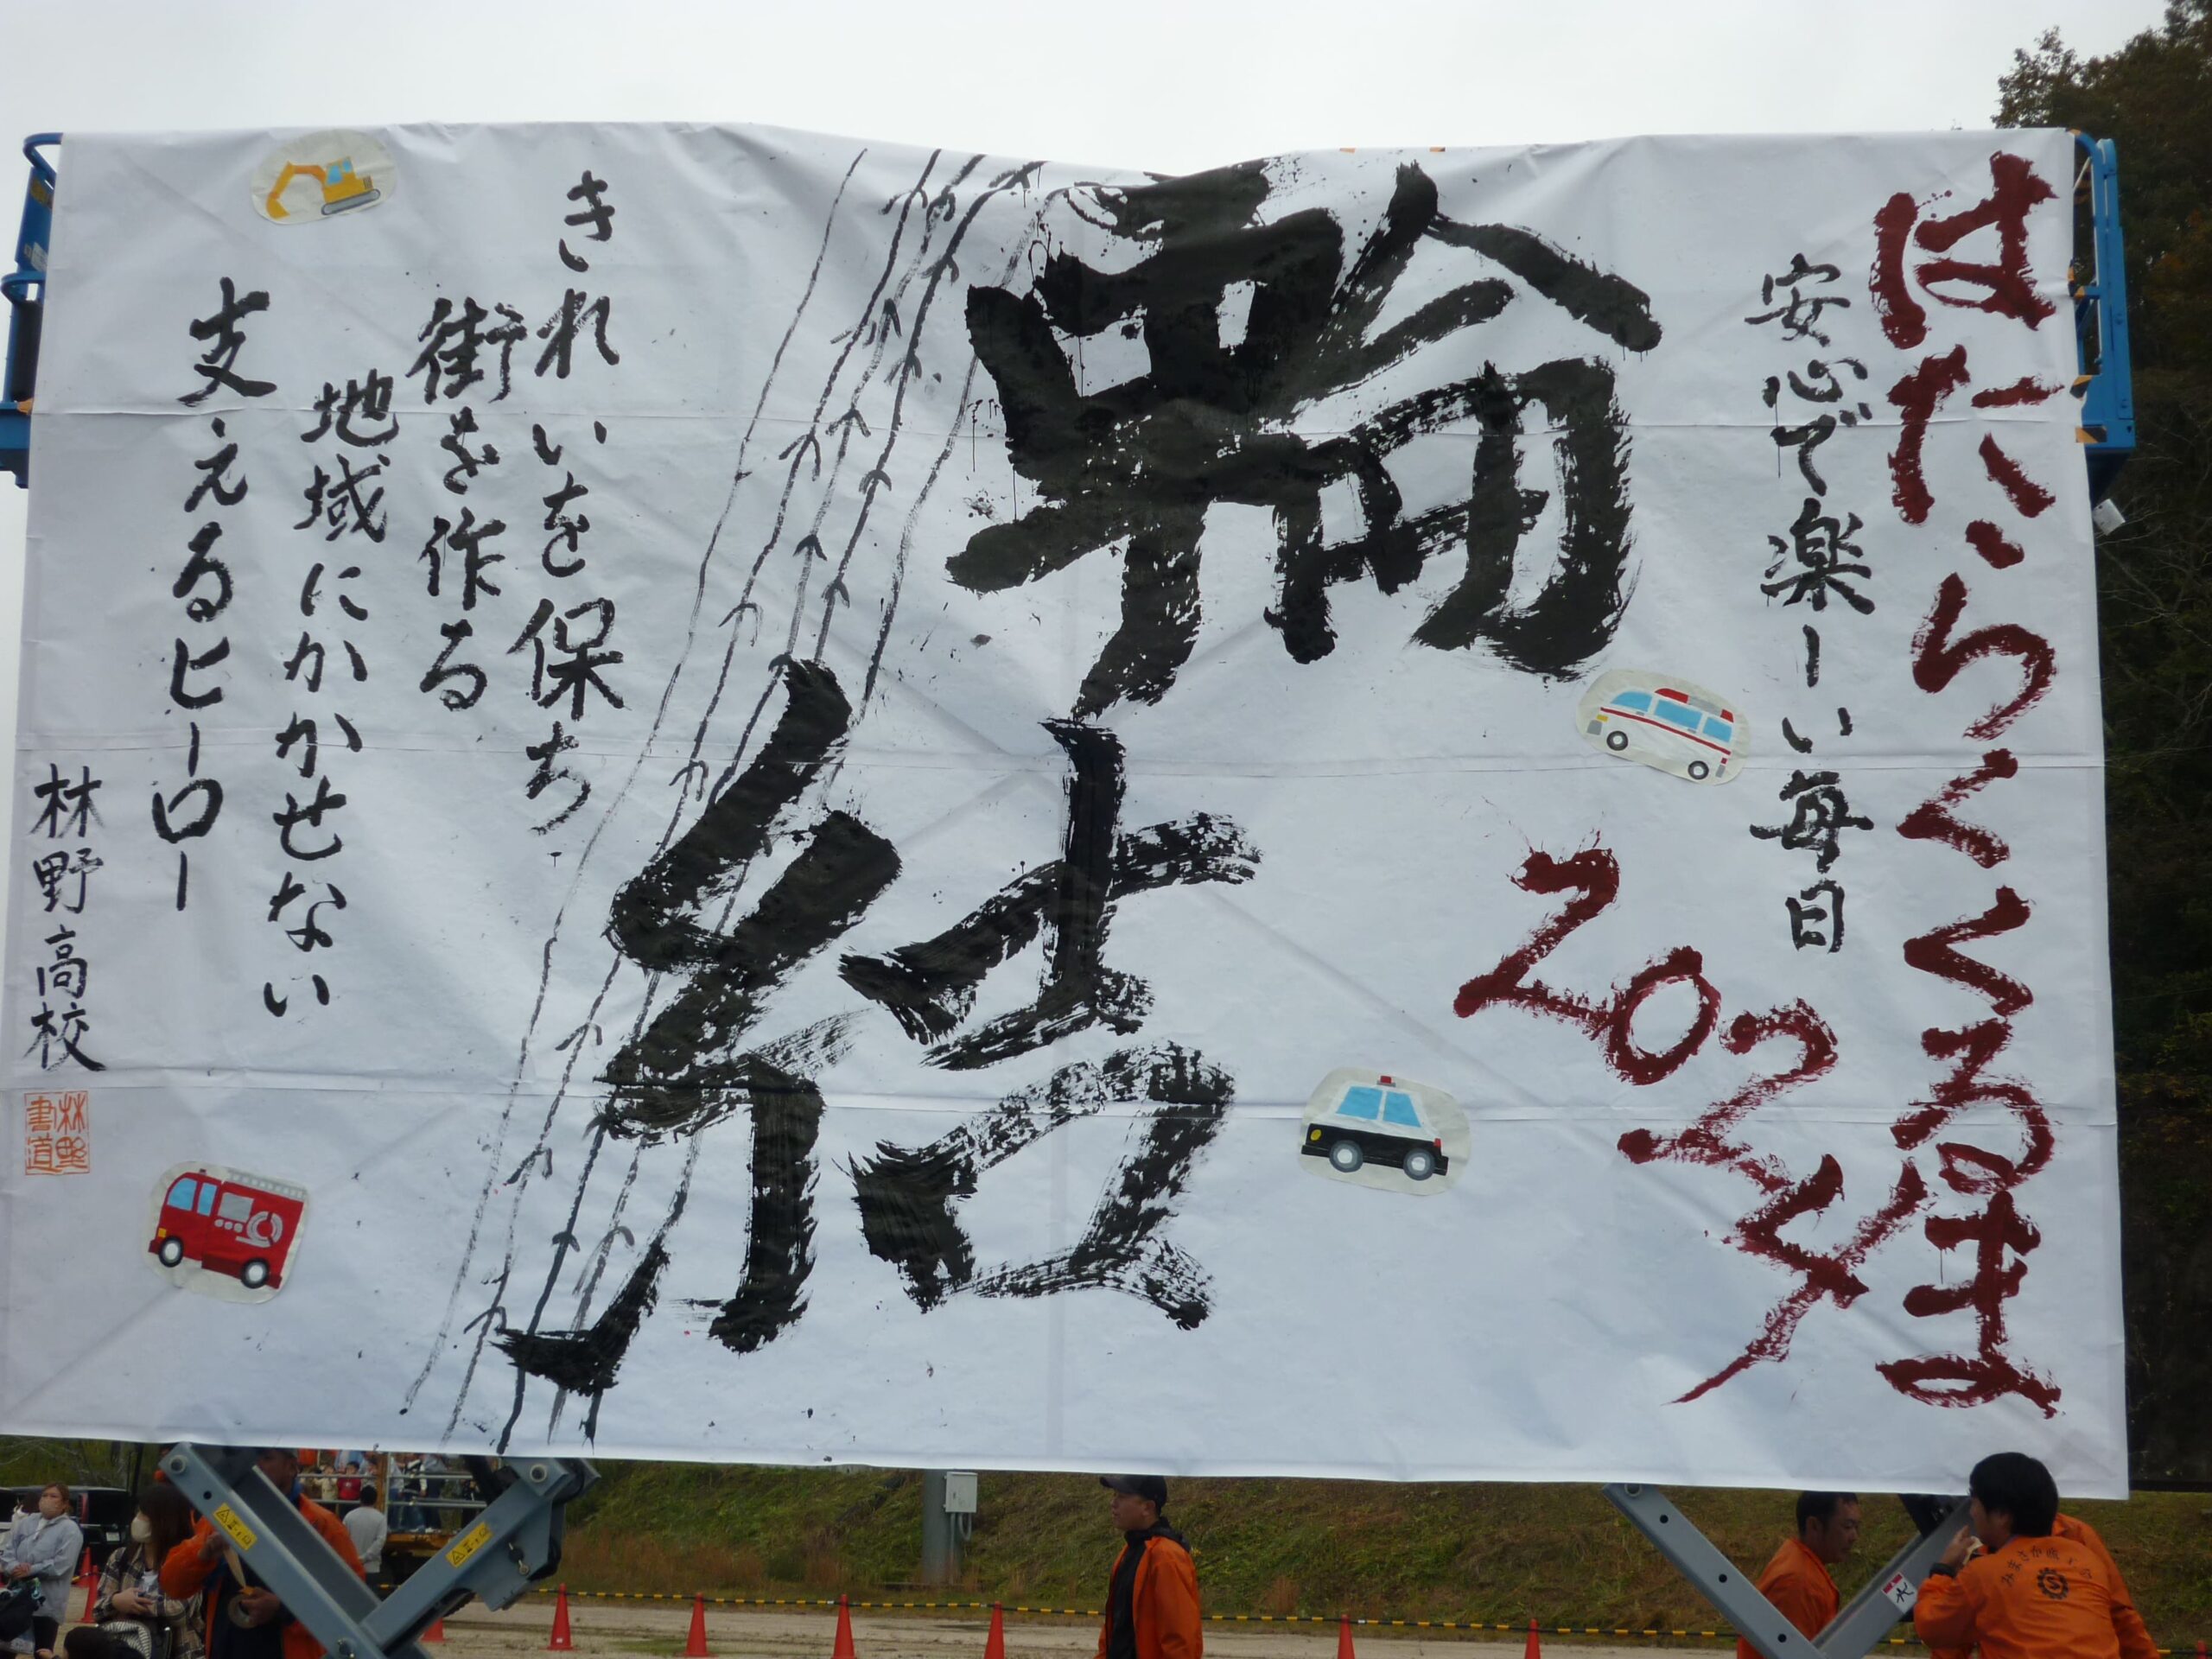 はたらくくるま
安心で楽しい毎日
2024
輪
結
きれいを保ち
街を作る
地域にかかせない
支えるヒーロー
林野高校
林野
書道